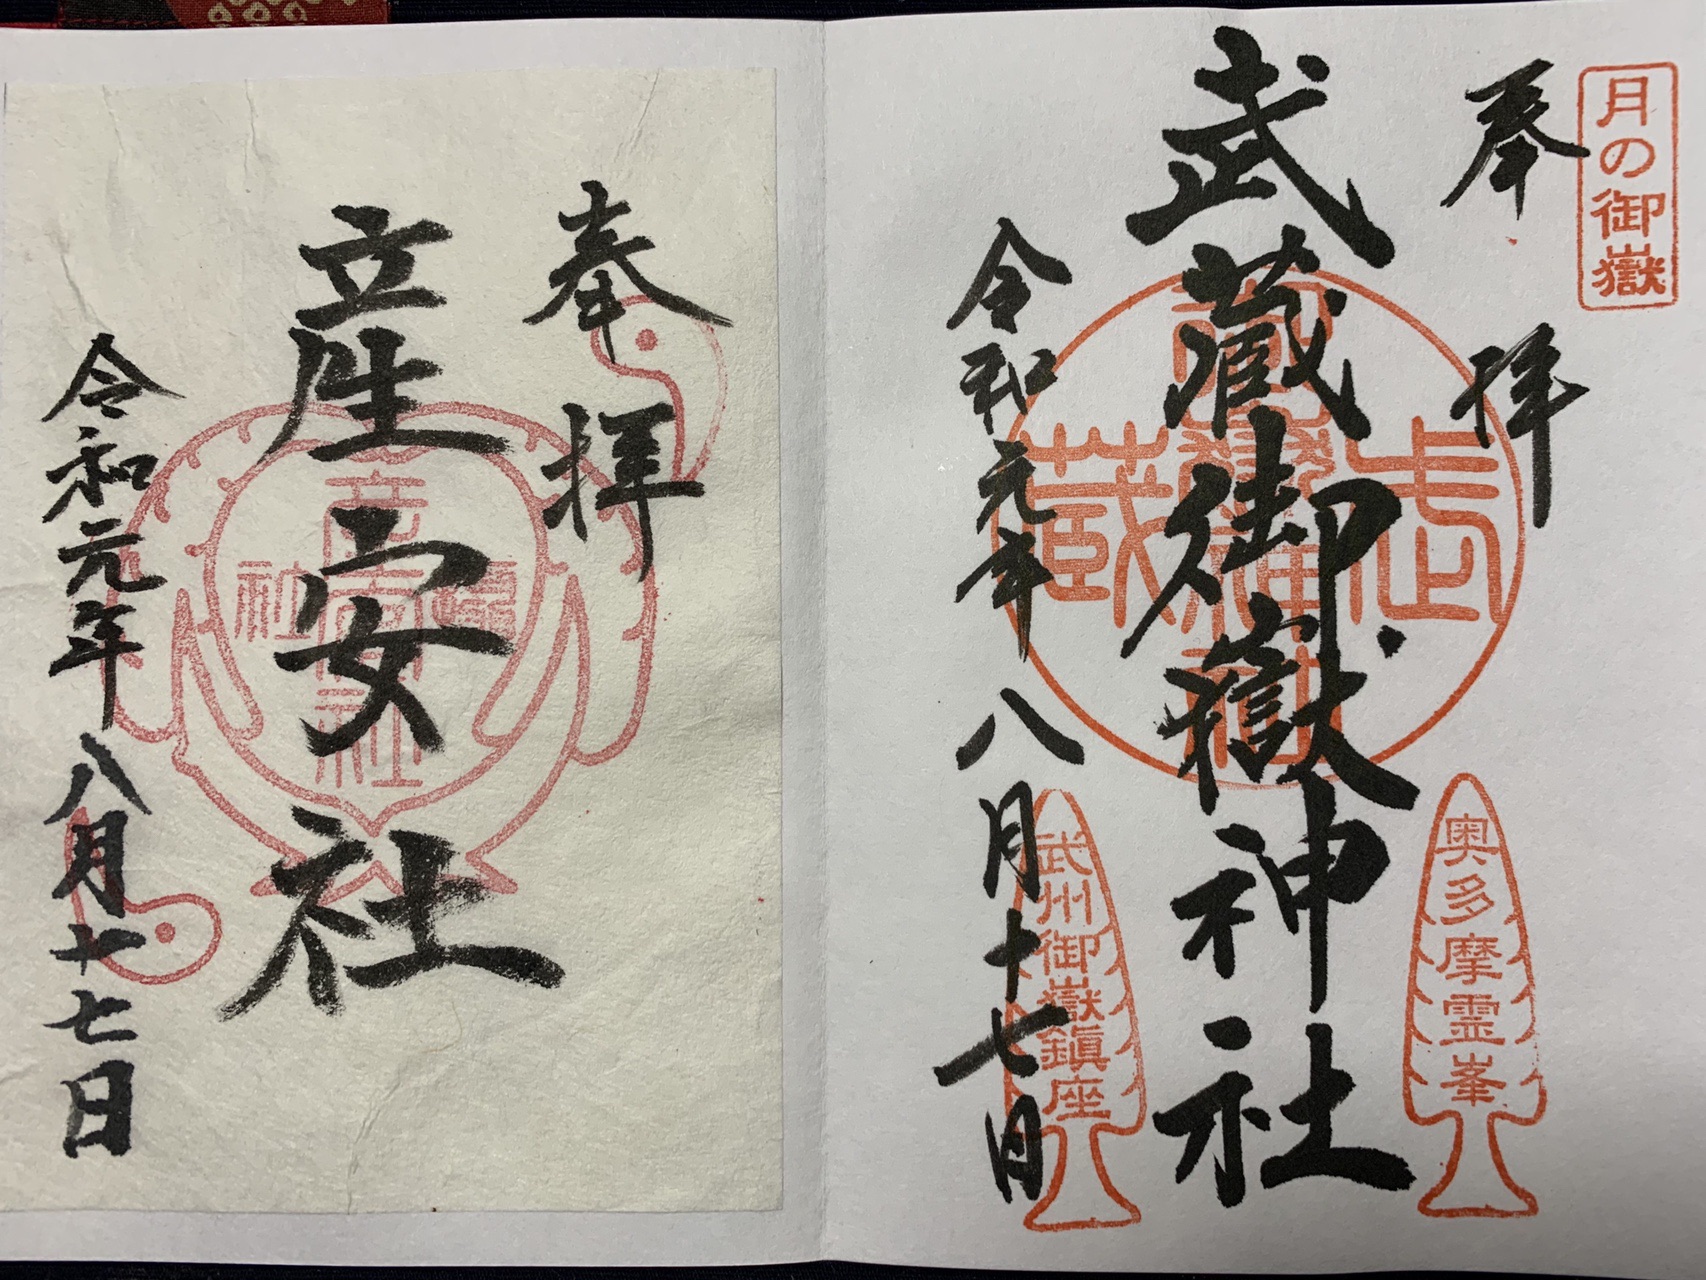 月の御嶽
奉拝
武蔵御嶽神社
令和元年八月十七日
奥多摩霊峯
武州御嶽鎮座
奉拝
産安社
令和元年八月十七日